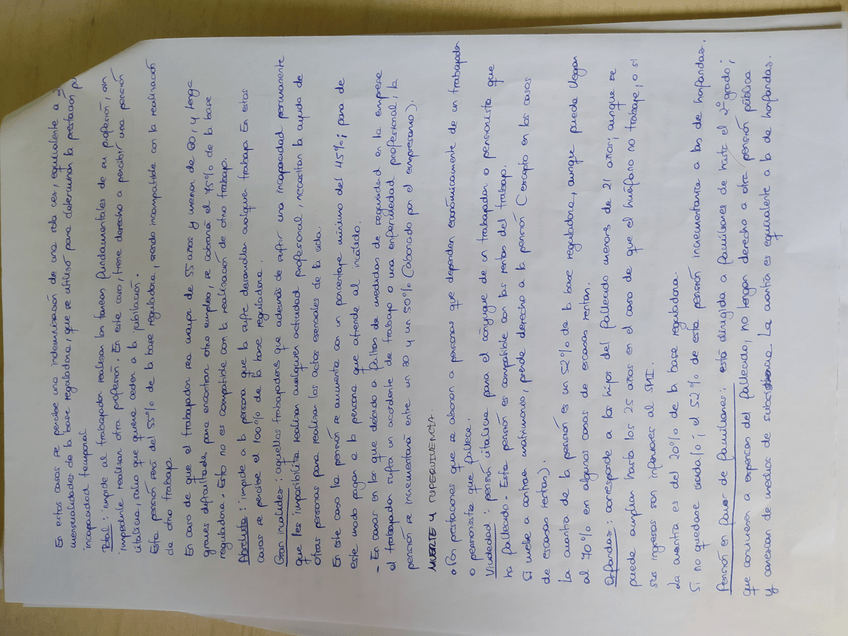 En estos casos se percibe una indemnización de una sola vez, equivalente a
mensualidades de la base reguladora, que se utilizó para determinar la prestación
incapacidad temporal.
Total: impide al trabajador realizar las tareas fundamentales de su profesión, sin
impedirle realizar otra profesión. En este caso, tiene derecho a percibir una pensión
vitalicia, salvo que quiera acceder a la jubilación.
Esta pensión será del 55% de la base reguladora, siendo incompatible con la realización
de otro trabajo.
En caso de que el trabajador sea mayor de 55 años y menor de 60, y tenga
graves dificultades para encontrar otro empleo, se abonará el 75% de la base
reguladora. Esto no es compatible con la realización de otro trabajo.
Absoluta: impide a la persona que la sufre desarrollar cualquier trabajo. En estos
casos se percibe el 100% de la base reguladora.
Gran invalidez: aquellos trabajadores que además de sufrir una incapacidad permanente
que les imposibilita realizar cualquier actividad profesional, necesitan la ayuda de
otras personas para realizar los actos esenciales de la vida.
En este caso la pensión se aumenta con un porcentaje mínimo del 45%; para de
este modo pagar a la persona que atiende al inválido.
- En casos en los que debido a faltas de medidas de seguridad en la empresa
el trabajador sufra un accidente de trabajo o una enfermedad profesional, la
pensión se incrementará entre un 30 y un 50% (abonado por el empresario).
MUERTE Y SUPERVIVENCIA.
• Son prestaciones que se abonan a personas que dependen económicamente de un trabajador
o pensionista que fallece.
Viudedad: pensión vitalicia para el cónyuge de un trabajador o pensionista que
ha fallecido. Esta pensión es compatible con las rentas del trabajo.
Si vuelve a contraer matrimonio, pierde derecho a la pensión (excepto en los casos
de escasas rentas).
La cuantía de la pensión es un 52% de la base reguladora, aunque puede llegar
al 70% en algunos casos de escasas rentas.
Orfandad: corresponde a los hijos del fallecido menores de 21 años; aunque se
puede ampliar hasta los 25 años en el caso de que el huérfano no trabaje, o si
sus ingresos son inferiores al SMI.
La cuantía es del 20% de la base reguladora.
Si no quedase viudo/a; el 52% de esta pensión incrementaría a los de huérfanos.
Pensión en favor de familiares: está dirigida a familiares de hasta el 2º grado;
que convivieran a expensas del fallecido, no tengan derecho a otra pensión pública
y carezcan de medios de subsistencia. La cuantía es equivalente a la de huérfanos.